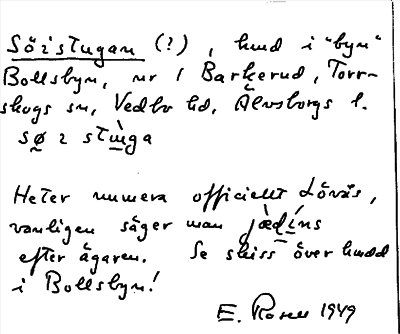 Sörstugan (?), hmd i "byn"
Bollsbyn, nr 1 Barkerud, Torr-
skogs sn, Vedbo hd, Älvsborgs l.
sø2 stu̇nga
Heter numera officiellt Lövås,
vanligen säger man jædins
efter ägaren. Se skiss över hmdd
i Bollsbyn!
E. Rosell 1949